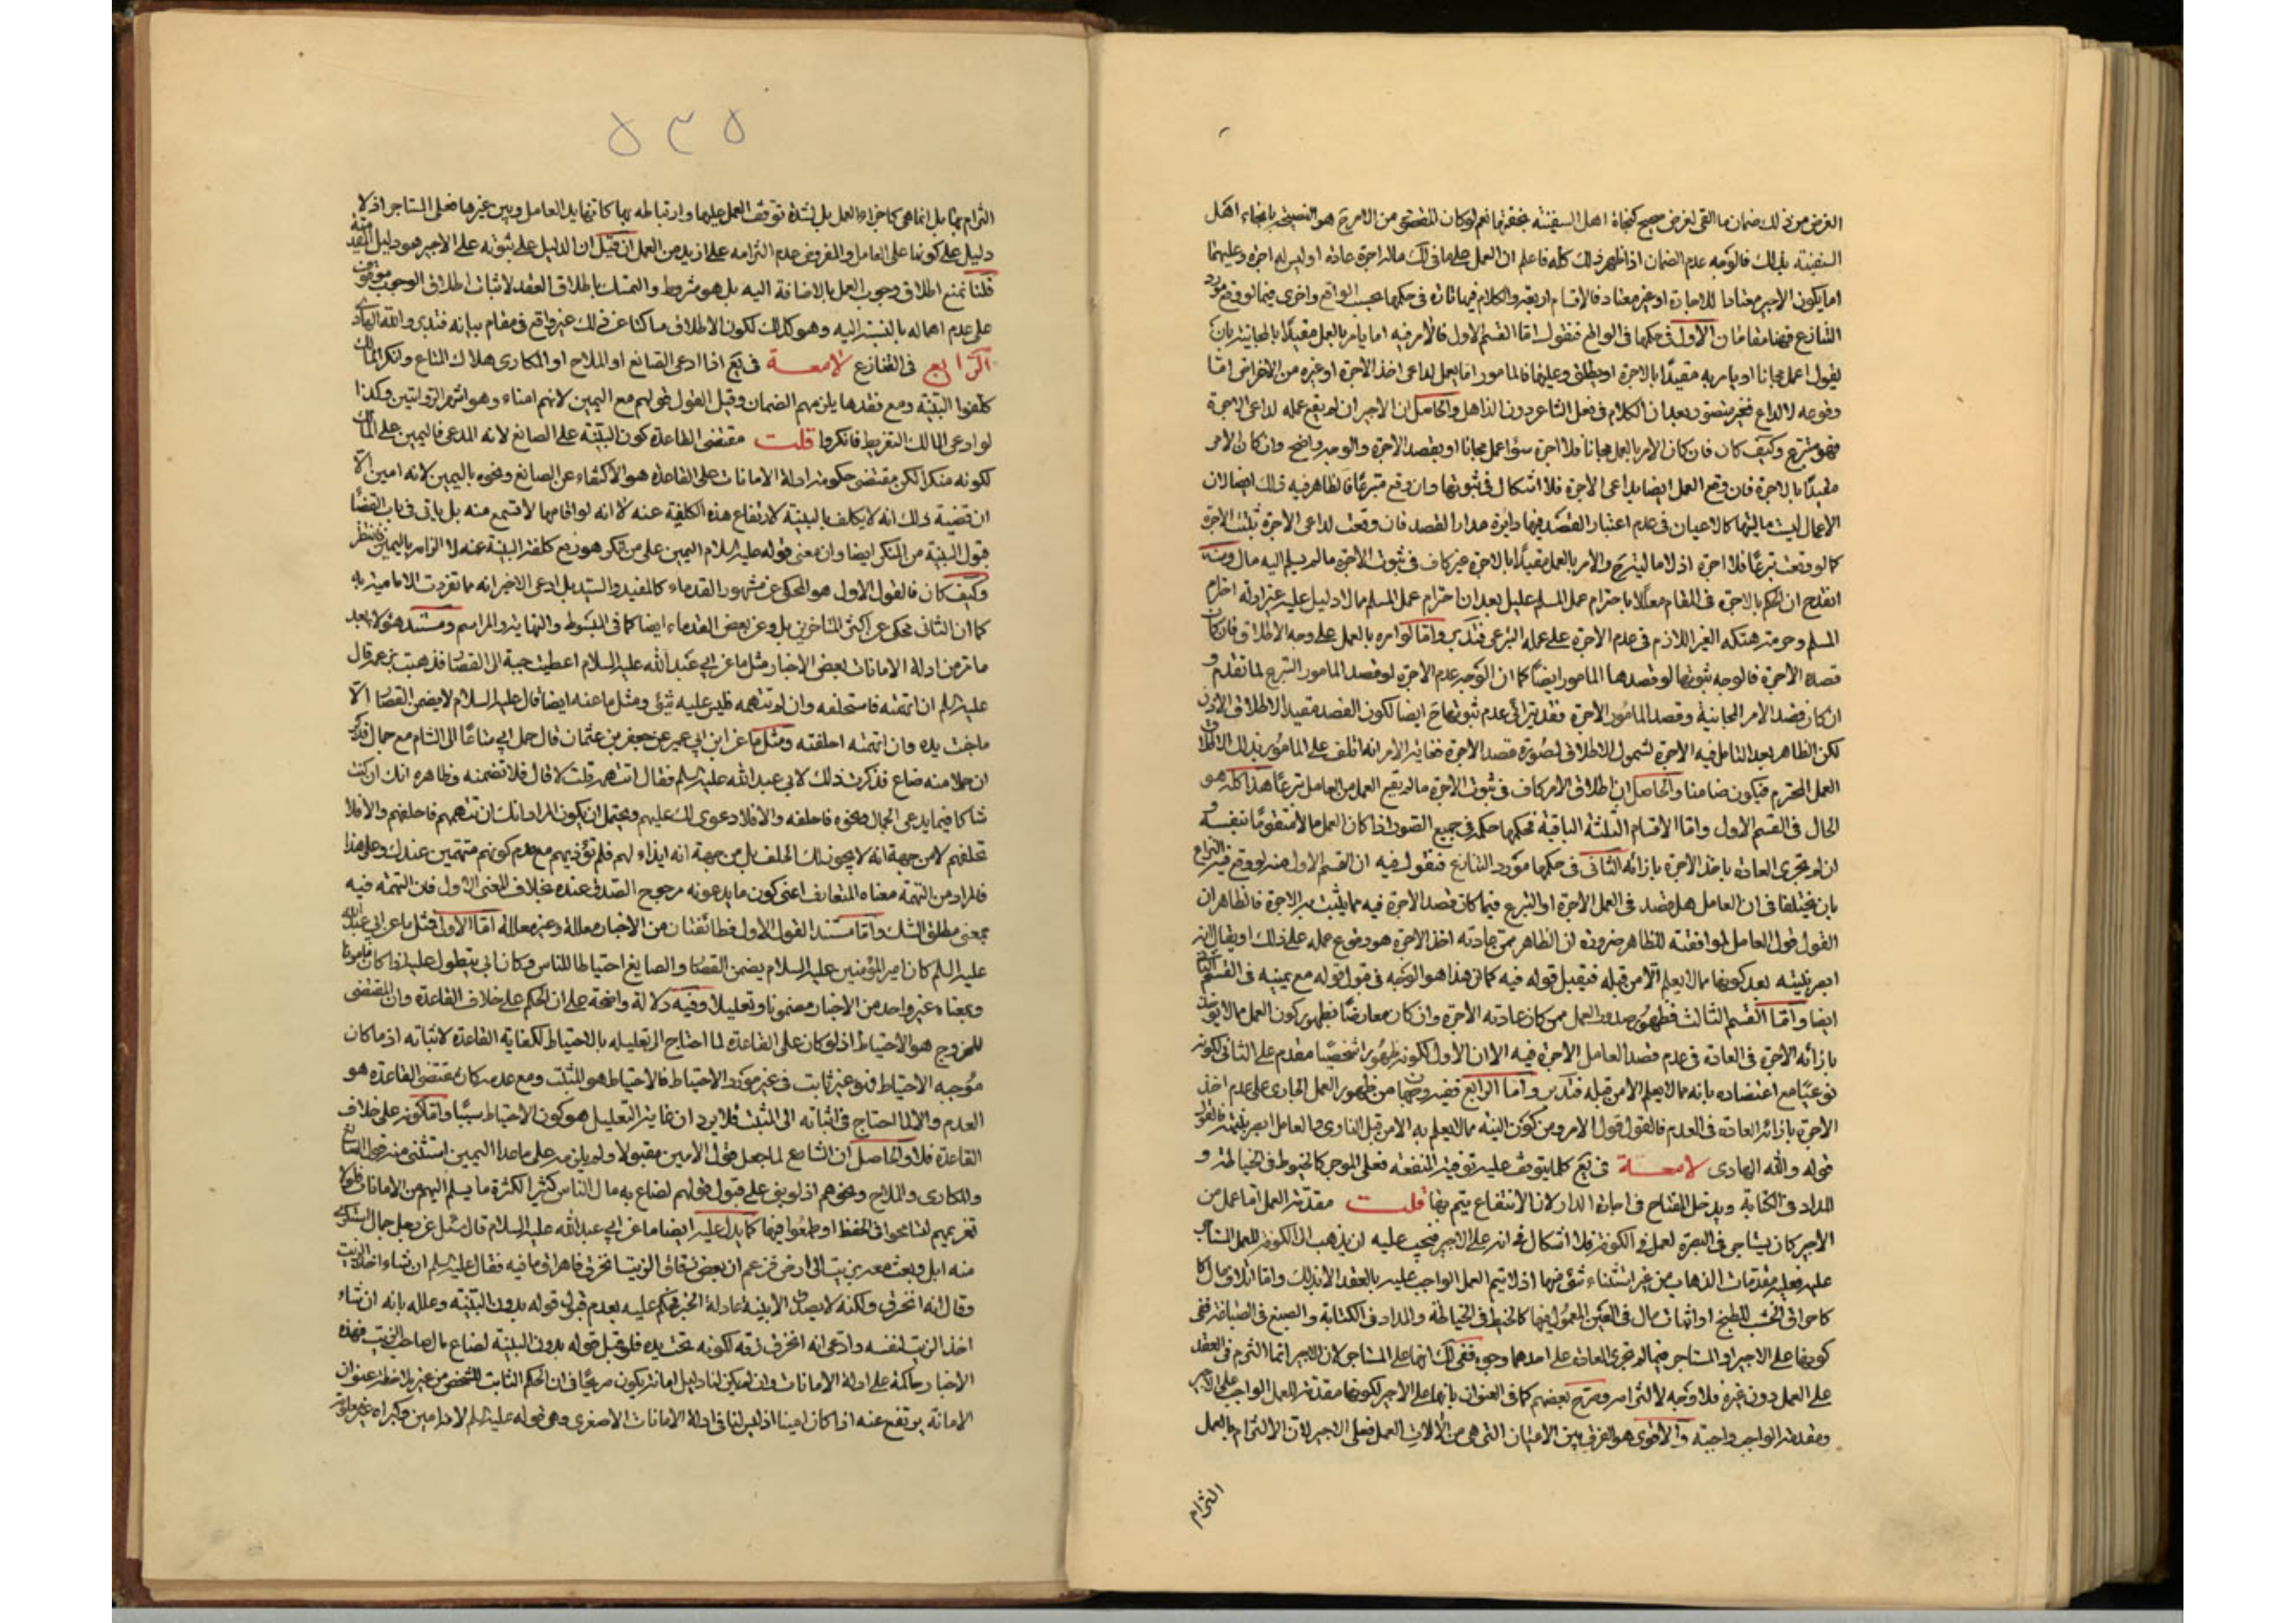 الغرض من ذلك ضمان ما القى لغرض صحيح كنجاة اهل السفينة بخفتها نعم لو كان المقصود من الامر هو النصيحة بانجاء اهل
السفينة بذلك فالوجه عدم الضمان اذا ظهر ذلك كله فاعلم ان العمل على ما فى لك ماله اجرة عادة او ليس له اجرة وعليهما
اما يكون الاجير معتادا للاجارة او غير معتاد فالاقسام اربعة والكلام فيها تارة فى حكمها بحسب الواقع واخرى فيما لو وقع مورد
التنازع فهنا مقامان الاول فى حكمها فى الواقع فنقول اما القسم الاول فالامر فيه اما يامر بالعمل مقيدًا بالمجانية بان
يقول اعمل مجانا او يامر به مقيدًا بالاجرة او يطلق وعليهما فالمامور اما يعمل لداعى اخذ الاجرة او غيره من الاغراض اما
وقوعه لا لداع فغير متصور بعد ان الكلام فى فعل الشاعر دون الذاهل والحاصل ان الاجير ان لم يقع عمله لداعى الاجرة
فهو متبرع وكيف كان فان كان الامر بالعمل مجانا فلا اجرة سواء عمل مجانا او بقصد الاجرة والوجه واضح وان كان الامر
مقيدًا بالاجرة فان وقع العمل ايضا بداعى الاجرة فلا اشكال فى ثبوتها وان وقع متبرعًا فالظاهر فيه ذلك ايضا لان
الاعمال ليست ماليتها كالاعيان فى عدم اعتبار القصد فيها دائرة مدار القصد فان وقعت لداعى الاجرة ثبتت الاجرة
كما لو وقعت تبرعًا فلا اجرة اذ لا مالية والامر بالعمل مقيدًا بالاجرة غير كاف فى ثبوت الاجرة ما لم يسلم اليه مال ومنه
انقدح ان الحكم بالاجرة فى المقام معللا باحترام عمل المسلم عليل بعد ان احترام عمل المسلم مما لا دليل عليه غير ادلة احترام
المسلم وحرمة هتكه الغير اللازم فى عدم الاجرة على عمله التبرعى فتدبر واما لو امره بالعمل على وجه الاطلاق فان كان
قصده الاجرة فالوجه ثبوتها لو قصدها المامور ايضًا كما ان الوجه عدم الاجرة لو قصد المامور التبرع لما تقدم و
ان كان قصد الامر المجانية وقصد المامور الاجرة فقد يترائى عدم ثبوتها ح ايضا لكون القصد مقيدا لاطلاق الاذن
لكن الظاهر بعد التامل فيه الاجرة لشمول الاطلاق لصورة قصد الاجرة فغاية الامر انه اتلف على المامور بذلك الاطلاق
العمل المحترم فيكون ضامنا والحاصل ان اطلاق الامر كاف فى ثبوت الاجرة ما لم يقع العمل من العامل تبرعًا هذا كله هو
الحال فى القسم الاول واما الاقسام الثلثة الباقية فحكمها حكمه فى جميع الصور اذا كان العمل مالا متقومًا بنفسه و
ان لم تجرى العادة باخذ الاجرة بازائه الثانى فى حكمها مورد التنازع فنقول فيه ان القسم الاول منه لو وقع فيه النزاع
بان يختلفا فى ان العامل هل قصد فى العمل الاجرة او التبرع فيما كان قصد الاجرة فيه مما يثبت به الاجرة فالظاهر ان
القول قول العامل لموافقته للظاهر ضرورة ان الظاهر ممن عادته اخذ الاجرة هو وقوع عمله على ذلك او يقال انه
ابصر بنيته بعد كونها مما لا يعلم الا من قبله فيقبل قوله فيه كما ان هذا هو الوجه فى قبول قوله مع يمينه فى القسم الثانى
ايضا واما القسم الثالث فظهور صدور العمل ممن كان عادته الاجرة وان كان معارضًا بظهور كون العمل مما لا يؤخذ
بازائه الاجرة فى العادة فى عدم قصد العامل الاجرة فيه الا ان الاول لكونه ظهورا شخصيًا مقدم على الثانى لكونه
نوعيًا مع اعتضاده بانه مما لا يعلم الا من قبله فتدبر واما الرابع ففيه وجهان من ظهور العمل الجارى على عدم اخذ
الاجرة بازائه العادة فى العدم فالقول قول الامر ومن كون النية مما لا يعلم به الا من قبل الناوى والعامل ابصر بنيته فالقول
قوله والله الهادى لامعة فى يَع كلما يتوقف عليه توفية المنفعة فعلى الموجر كالخيوط فى الخياطة و
المداد فى الكتابة ويدخل المفتاح فى اجارة الدار لان الانتفاع يتم بها قلت مقدمة العمل اما عمل من
الاجير كان يستاجر فى البصرة لعمل فى الكوفة فلا اشكال فى انه على الاجير فيجب عليه ان يذهب الى الكوفة للعمل المستاجر
عليه فعليه مقدمات الذهاب من غير استثناء شئ منها اذ لا يتم العمل الواجب عليه بالعقد الا بذلك واما اتلاف مال كا
كاحراق الخشب للطبخ او اثبات مال فى العين المعمول فيها كالخيط فى الخياطة والمداد فى الكتابة والصبغ فى الصباغة ففى
كونها على الاجير او المستاجر فيما لم تجرى العادة على احدهما وجوه ففى لك انها على المستاجر لان الاجير انما التزم فى العقد
على العمل دون غيره فلا وجه لالتزامه وصرح بعضهم كما فى العنوان بانها على الاجير لكونها مقدمة للعمل الواجب على الاجير
ومقدمة الواجب واجبة والاقوى هو الفرق بين الاعيان التى هى من الالات العمل فعلى الاجير لان الالتزام بالعمل
التزام
٥٣٥
التزام بها بل انما هى كاجزاء العمل بل لشدة توقف العمل عليها وارتباطه بها كانها يد العامل وبين غيرها فعلى المستاجر اذ لا
دليل على كونها على العامل والمفروض عدم التزامه على ازيد من العمل ان قيل ان الدليل على ثبوته على الاجير هو دليل المقدمة
قلنا نمنع اطلاق وجوب العمل بالاضافة اليه بل هو مشروط والتمسك باطلاق العقد لاثبات اطلاق الوجوب موقوف
على عدم اهماله بالنسبة اليه وهو كذلك لكون الاطلاق ساكتا عن ذلك غير واقع فى مقام بيانه فتدبر والله الهادى
الرابع فى التنازع لامعة فى يَع اذا ادعى الصانع او الملاح او المكارى هلاك المتاع وانكر المالك
كلفوا البينة ومع فقدها يلزمهم الضمان وقيل القول قولهم مع اليمين لانهم امناء وهو اشهر الروايتين وكذا
لو ادعى المالك التفريط فانكروا قلت مقتضى القاعدة كون البينة على الصانع لانه المدعى فاليمين على المالك
لكونه منكرا لكن مقتضى حكومة ادلة الامانات على القاعدة هو الاكتفاء عن الصانع ونحوه باليمين لانه امين الا
ان قضية ذلك انه لا يكلف بالبينة لارتفاع هذه الكلفة عنه لا انه لو اقامها لا تسمع منه بل ياتى فى باب القضا
قبول البينة من المنكر ايضا وان معنى قوله عليه السلام اليمين على من انكر هو رفع كلفة البينة عنه لا الزامه باليمين فانتظر
وكيف كان فالقول الاول هو المحكى عن مشهور القدماء كالمفيد والسيد بل ادعى الاخير انه مما تفردت الامامية به
كما ان الثانى محكى عن اكثر المتاخرين بل وعن بعض القدماء ايضا كما فى المبسوط والنهاية والمراسم ومستند هؤلاء بعد
ما تر من ادلة الامانات بعض الاخبار مثل ما عن ابى عبد الله عليه السلام اعطيت جبة الى القصار فذهبت بزعمه قال
عليه السلام ان اتهمته فاستحلفه وان لم تتهمه فليس عليه شئ ومثل ما عنه ايضا قال عليه السلام لا يضمن القصار الا
ما جنت يده وان اتهمته احلفته ومثل ما عن ابن ابى عمير عن جعفر بن عثمان قال حمل ابى متاعًا الى الشام مع جمال فذكر
ان حملا منه ضاع فذكرت ذلك لابى عبد الله عليه السلم فقال اتتهمه قلت لا قال فلا تضمنه وظاهره انك ان كنت
شاكا فيما يدعى الجمال ونحوه فاحلفه والا فلا دعوى لك عليهم ويحتمل ان يكون المراد انك ان تتهمهم فاحلفهم والا فلا
تحلفهم لا من جهة انه لا يجوز لك الحلف بل من جهة انه ايذاء لهم فلم تؤذيهم مع عدم كونهم متهمين عندك وعلى هذا
فالمراد من التهمة معناه المتعارف اعنى كون ما يدعونه مرجوح الصدق عنده بخلاف المعنى الاول فان التهمة فيه
بمعنى مطلق الشك واما مستند القول الاول فطائفتان من الاخبار معللة وغير معللة اما الاول فمثل ما عن ابى عبد الله
عليه السلم كان امير المؤمنين عليه السلام يضمن القصار والصايغ احتياطا للناس وكان ابى يتطول عليه اذا كان مامونا
وبمعناه غير واحد من الاخبار مضمونا وتعليلا وفيه دلالة واضحة على ان الحكم على خلاف القاعدة وان المقتضى
للخروج هو الاحتياط اذ لو كان على القاعدة لما احتاج الى تعليله بالاحتياط لكفاية القاعدة لاثباته اذ ما كان
موجبه الاحتياط فهو غير ثابت فى غير مورد الاحتياط فالاحتياط هو المثبت ومع عدمه كان مقتضى القاعدة هو
العدم والا لما احتاج فى اثباته الى المثبت فلا يرد ان غاية التعليل هو كون الاحتياط سببًا واما كونه على خلاف
القاعدة فلا والحاصل ان الشارع لما جعل قول الامين مقبولا ولم يلزمه على ما عدا اليمين استثنى منه قول الصانع
والمكارى والملاح ونحوهم اذ لو بقى على قبول قولهم لضاع به مال الناس كثيرا لكثرة ما يسلم اليهم من الامانات فلولا
تغريمهم لتسامحوا فى الحفظ او طمعوا فيها كما يدل عليه ايضا ما عن ابى عبد الله عليه السلام قال سئل عن رجل جمال استكرى
منه ابل وبعث معه بزيت الى ارض فزعم ان بعض زقاق الزيت انخرق فاهراق ما فيه فقال عليه السلم ان شاء اخذ الزيت
وقال انه انخرق ولكنه لا يصدق الا ببينة عادلة الخبر فحكم عليه بعدم قبول قوله بدون البينة وعلله بانه ان شاء
اخذ الزيت لنفسه وادعى انه انخرق زقه لكونه تحت يده فلو قبل قوله بدون البينة لضاع مال صاحب الزيت فهذه
الاخبار حاكمة على ادلة الامانات وان لم يكن لنا دليل امانة يكون مرجحًا فى ان الحكم الثابت للشخص من غير ملاحظة عنوان
الامانة يرتفع عنه اذا كان امينا اذ ليس لنا فى ادلة الامانات الا صغرى وهى قوله عليه السلم